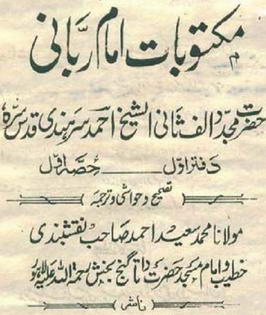 مکتوبات امام ربانی
حضرت مجدد الف ثانی الشیخ احمد سرہندی قدس سرہٗ
دفتر اول حصہ اول
تصحیح و حواشی و ترجمہ
مولانا محمد سعید احمد صاحب نقشبندی
خطیب و امام مسجد حضرت داتا گنج بخش رحمۃ اللہ علیہ لاہور
ناشر